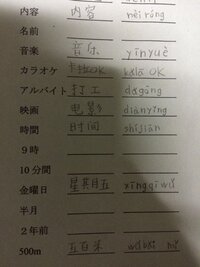 内容 内容 nèiróng
名前
音楽 音乐 yīnyuè
カラオケ 卡拉OK kǎlā OK
アルバイト 打工 dǎgōng
映画 电影 diànyǐng
時間 时间 shíjiān
9時
10分間
金曜日 星其月五 xīngqīwǔ
半月
2年前
500m 五百米 wǔbǎi mǐ